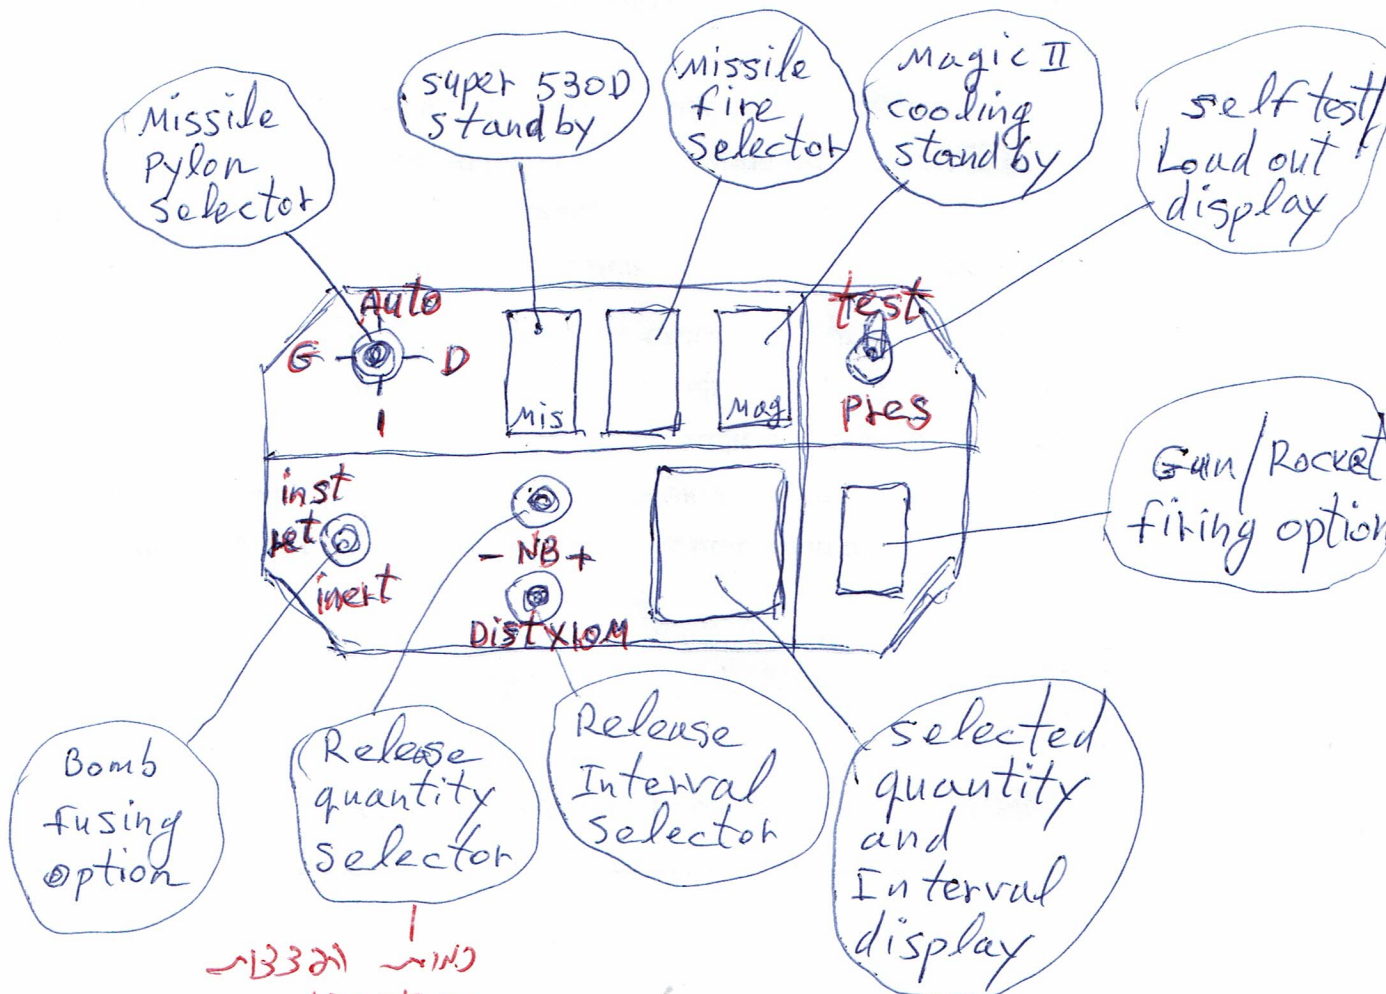 Missile
Pylon
Selector
super 530D
standby
Missile
fire
Selector
Magic II
cooling
standby
self test/
Load out
display
Auto
G
D
1
Mis
Mag
test
Pres
Gun/Rocket
firing option
inst
ret
inert
- NB +
Dist X10M
Bomb
fusing
option
Release
quantity
selector
Release
Interval
Selector
selected
quantity
and
Interval
display
כמות הפצצות